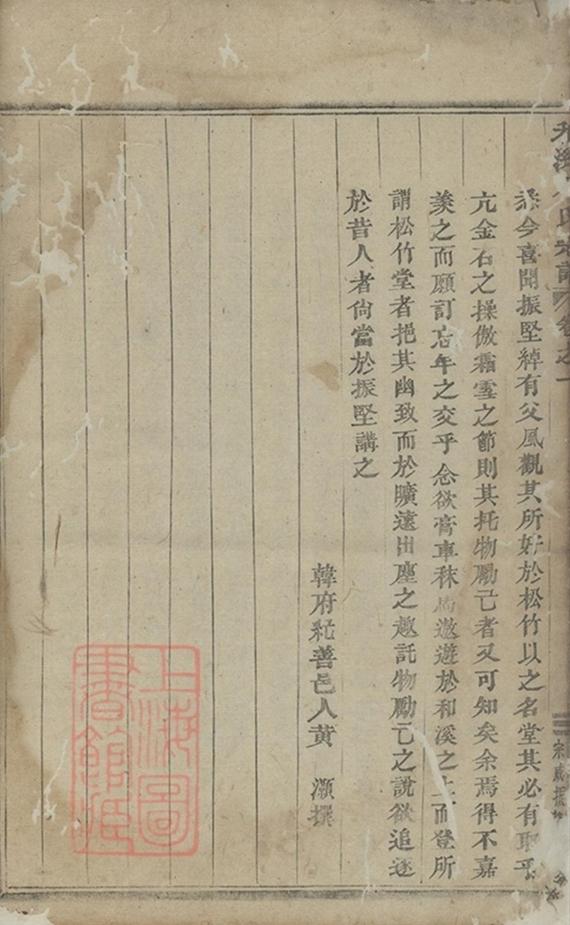 今喜聞振堅綽有父風觀其所好於松竹以之名堂其必有取乎
亢金石之操傲霜雪之節則其托物勵己者又可知矣余焉得不嘉
羨之而願訂忘年之交乎念欲膏車秣 遨遊於和溪之上而登所
謂松竹堂者挹其幽致而於曠遠出塵之趣託物勵己之說欲追逐
於昔人者尙當於振堅講之
韓府紀善邑人黃 灝撰
上海圖
書館藏